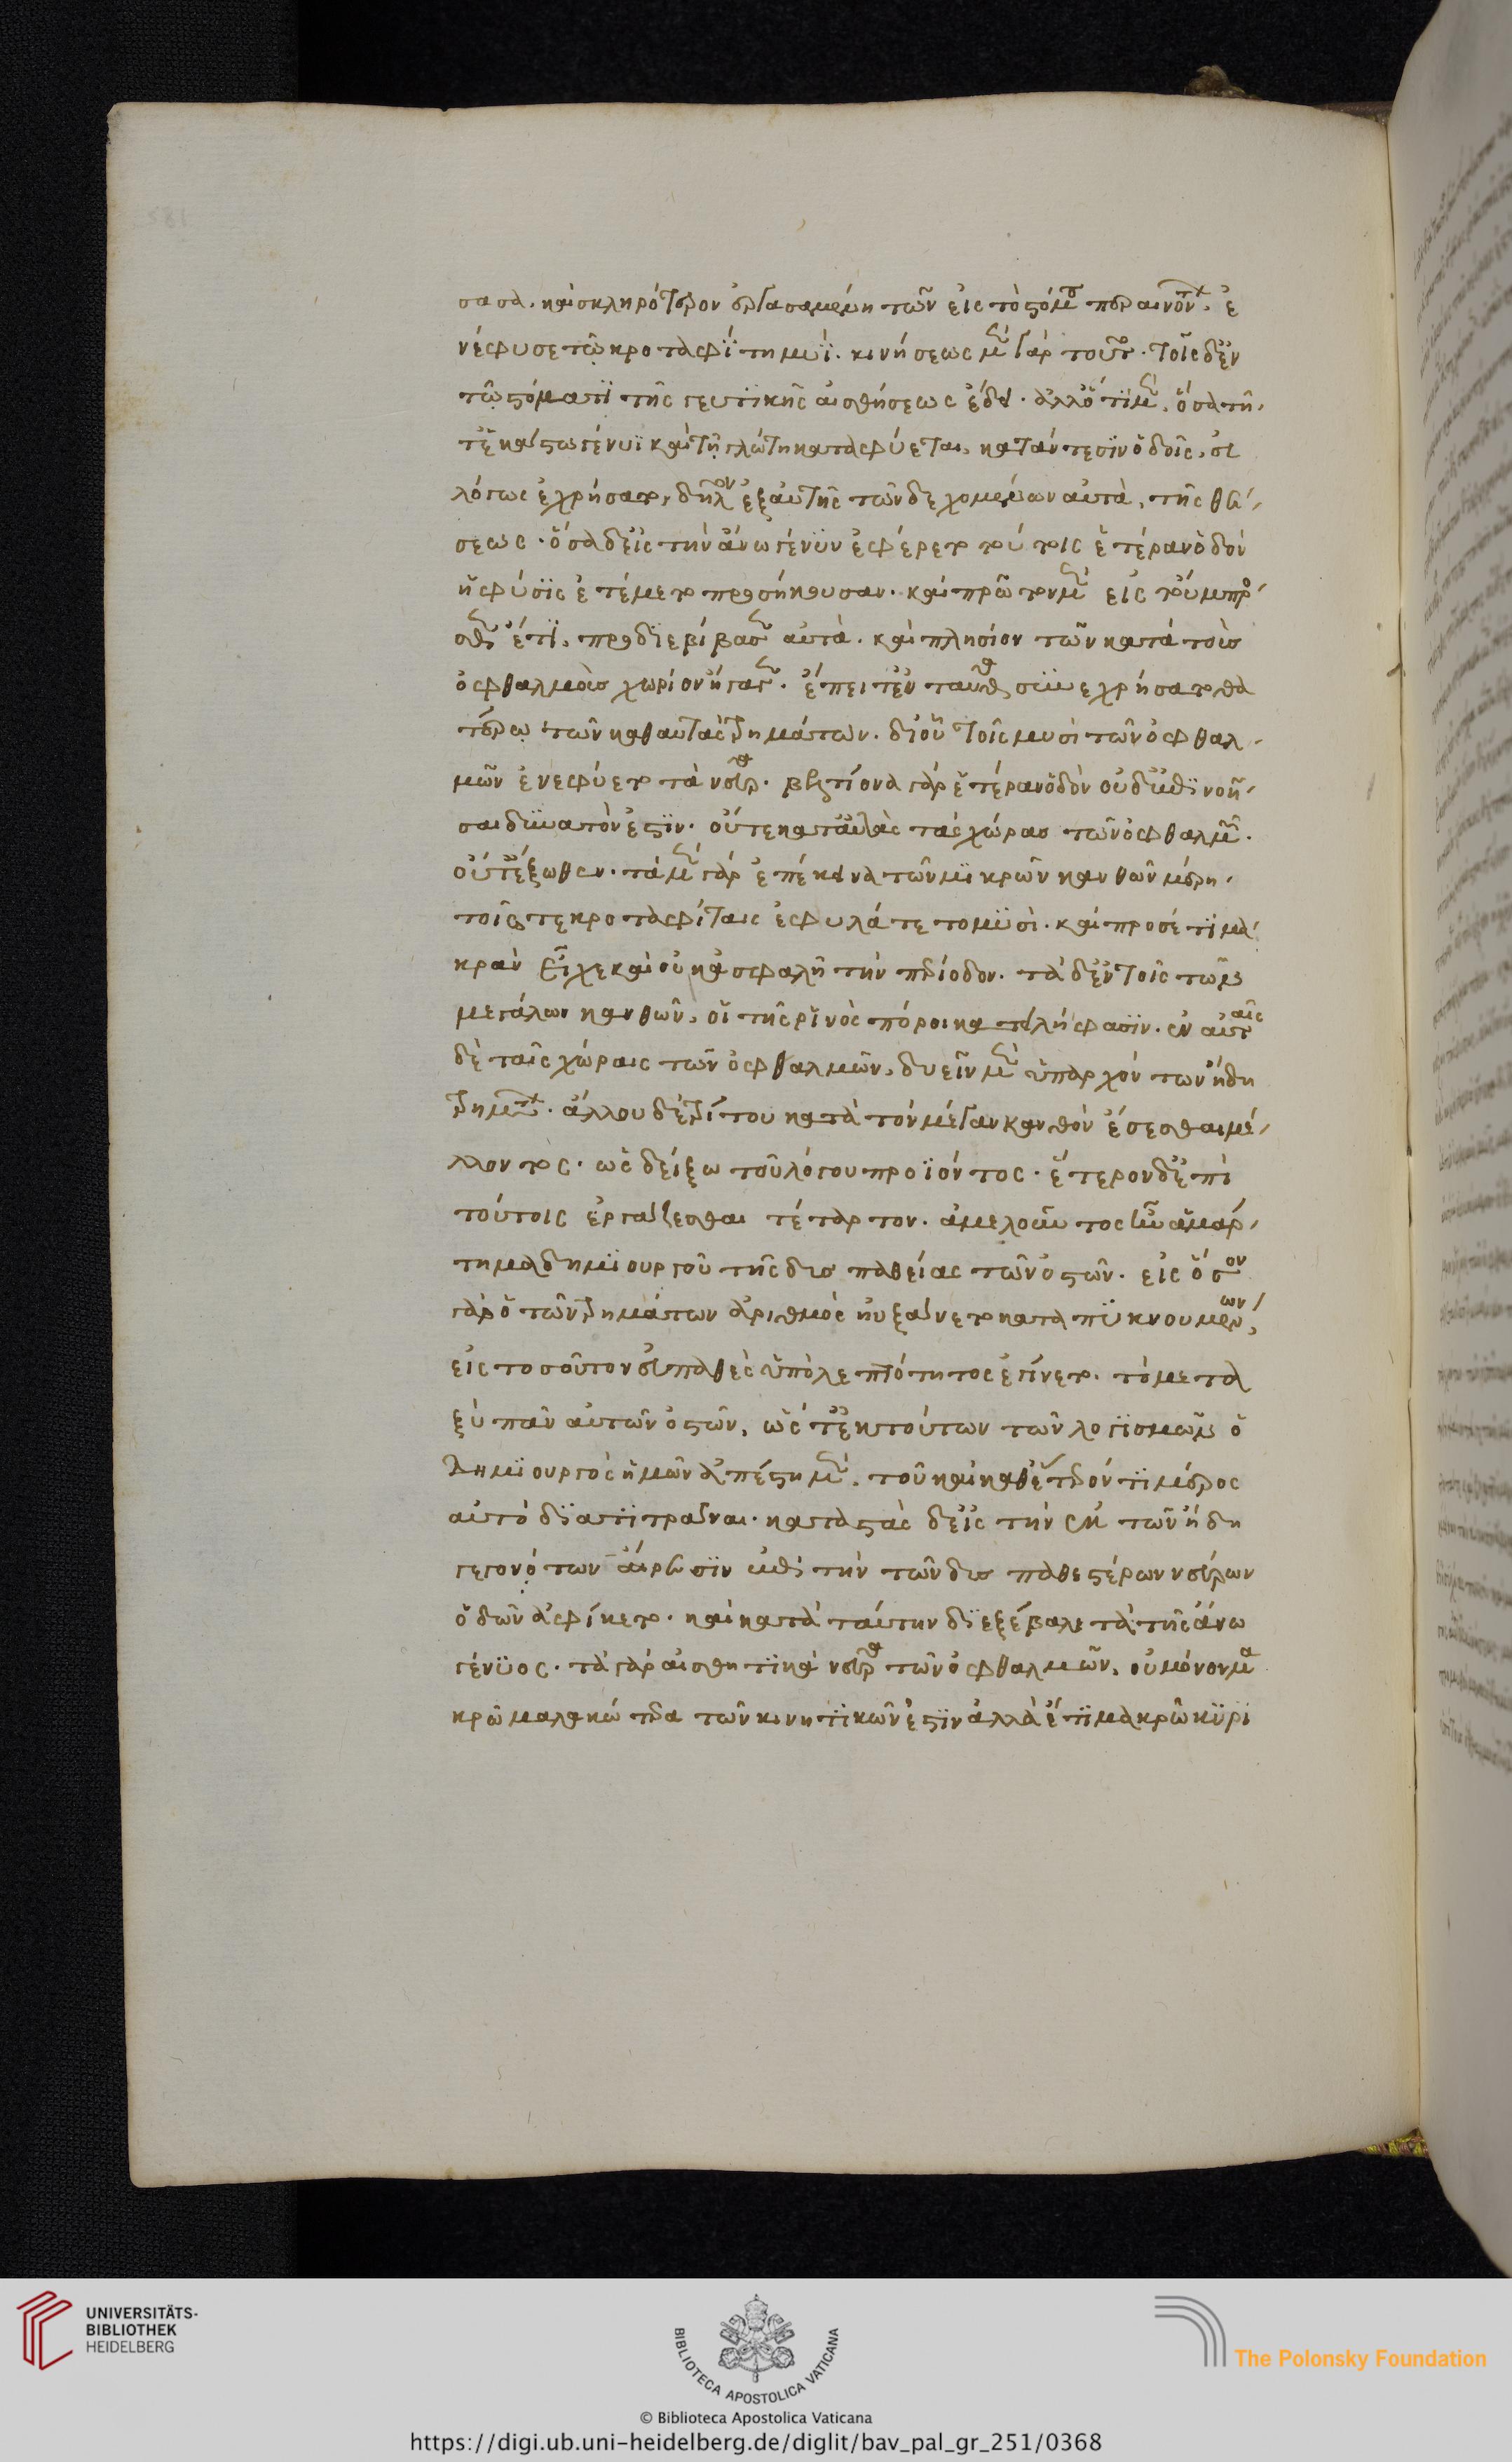 σασα. καὶ σκληρότερον ἐργασαμένη τῶν εἰς τὸ στόμα περαινόντων. ἐ
νέφυσε τῷ κροταφίτῃ μυΐ. κινήσεως μὲν γὰρ τούτῳ. τοῖς δ' ἐν
τῷ στόματι τῆς γευστικῆς αἰσθήσεως ἔδει. ἀλλ' ὅτι μὲν, ὅσα τῇ
τε κάτω γένυϊ καὶ τῇ γλώττῃ καταφύεται. κατάντεσιν ὁδοῖς, εὐ
λόγως ἐχρήσατο, δῆλον ἐξ αὐτῆς τῶν δεχομένων αὐτὰ, τῆς θέ
σεως. ὅσα δ' εἰς τὴν ἄνω γένυν ἐφέρετο τούτοις ἑτέραν ὁδὸν
ἡ φύσις ἐτέμετο προσήκουσαν. καὶ πρῶτον μὲν εἰς τοὔμπρο
σθεν ἔτι. προδιεβίβασεν αὐτά. καὶ πλησίον τῶν κατὰ τοὺς
ὀφθαλμοὺς χωρίον ἤγαγεν. ἔπειτ' ἐνταῦθα συνεχρήσατο θα
τέρῳ τῶν κατ' αὐτὰς τρημάτων. δι' οὗ τοῖς μυσὶ τῶν ὀφθαλ
μῶν ἐνεφύετο τὰ νεῦρα. βελτίονα γὰρ ἑτέραν ὁδὸν οὐδ' ἐπινοῆ
σαι δυνατόν ἐστιν. οὔτε κατ' αὐτὰς τὰς χώρας τῶν ὀφθαλμῶν.
οὔτ' ἔξωθεν. τὰ μὲν γὰρ ἐπέκεινα τῶν μικρῶν κανθῶν μέρη.
τοῖς τε κροταφίταις ἐφυλάττετο μυσὶ. καὶ προσέτι μα
κρὰν εἶχε καὶ οὐκ ἀσφαλῆ τὴν περίοδον. τὰ δ' ἐν τοῖς τῶν
μεγάλων κανθῶν, οἱ τῆς ῥινὸς πόροι κατειλήφασιν. ἐν αὐταῖς
δὲ ταῖς χώραις τῶν ὀφθαλμῶν, δυεῖν μὲν ὑπαρχόντων ἤδη
τρημάτων. ἄλλου δὲ τρίτου κατὰ τὸν μέγαν κανθὸν ἔσεσθαι μέ
λλοντος. ὡς δείξω τοῦ λόγου προϊόντος. ἕτερον δ' ἐπὶ
τούτοις ἐργάζεσθαι τέταρτον. ἀμελοῦντος ἦν ἁμάρ
τημα δημιουργοῦ τῆς δυσπαθείας τῶν ὀστῶν. εἰς ὅσον
γὰρ ὁ τῶν τρημάτων ἀριθμὸς ηὐξαίνετο καταπυκνουμένων,
εἰς τοσοῦτον εὐπαθὲς ὑπὸ λεπτότητος ἐγίνετο. τὸ μετα
ξὺ πᾶν αὐτῶν ὀστῶν, ὥστ' ἐκ τούτων τῶν λογισμῶν ὁ
δημιουργὸς ἡμῶν ἀπέστη μὲν. τοῦ καὶ καθ' ἕτερόν τι μέρος
αὐτὸ διατιτρᾶναι. καταστὰς δ' εἰς τὴν ἐκ τῶν ἤδη
γεγονότων αἵρεσιν ἐπὶ τὴν τῶν δυσπαθεστέρων νεύρων
ὁδὸν ἀφίκετο. καὶ κατὰ ταύτην διεξέβαλε τὰ τῆς ἄνω
γένυος. τὰ γὰρ αἰσθητικὰ νεῦρα τῶν ὀφθαλμῶν, οὐ μόνον μα
κρῷ μαλακώτερα τῶν κινητικῶν ἐστιν ἀλλὰ ἔτι μακρῷ κυρι
UNIVERSITÄTS-
BIBLIOTHEK
HEIDELBERG
BIBLIOTECA APOSTOLICA VATICANA
The Polonsky Foundation
© Biblioteca Apostolica Vaticana
https://digi.ub.uni-heidelberg.de/diglit/bav_pal_gr_251/0368